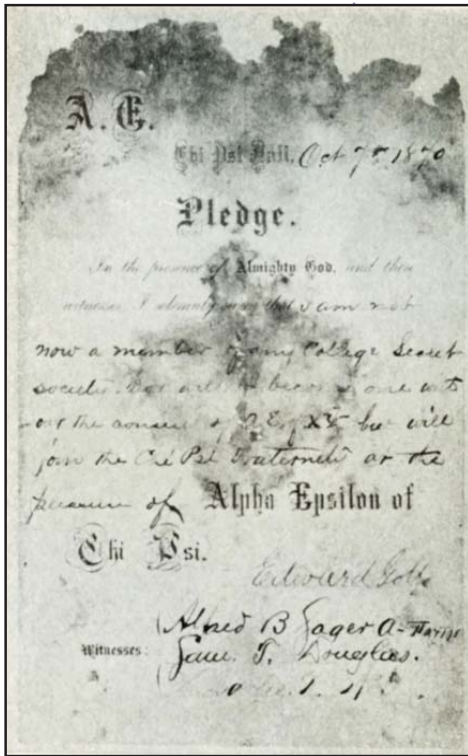 A. E.
Chi Psi Hall, Oct 7th 1870
Pledge.
In the presence of Almighty God, and these
witnesses I solemnly swear that I am not
now a member of any College Secret
society nor will become one with
out the consent of A E of X Ψ but will
join the Chi Psi Fraternity at the
pleasure of Alpha Epsilon of
Chi Psi.
Edward
Alfred B Sager A-
Witnesses: Sam. T. Douglas.